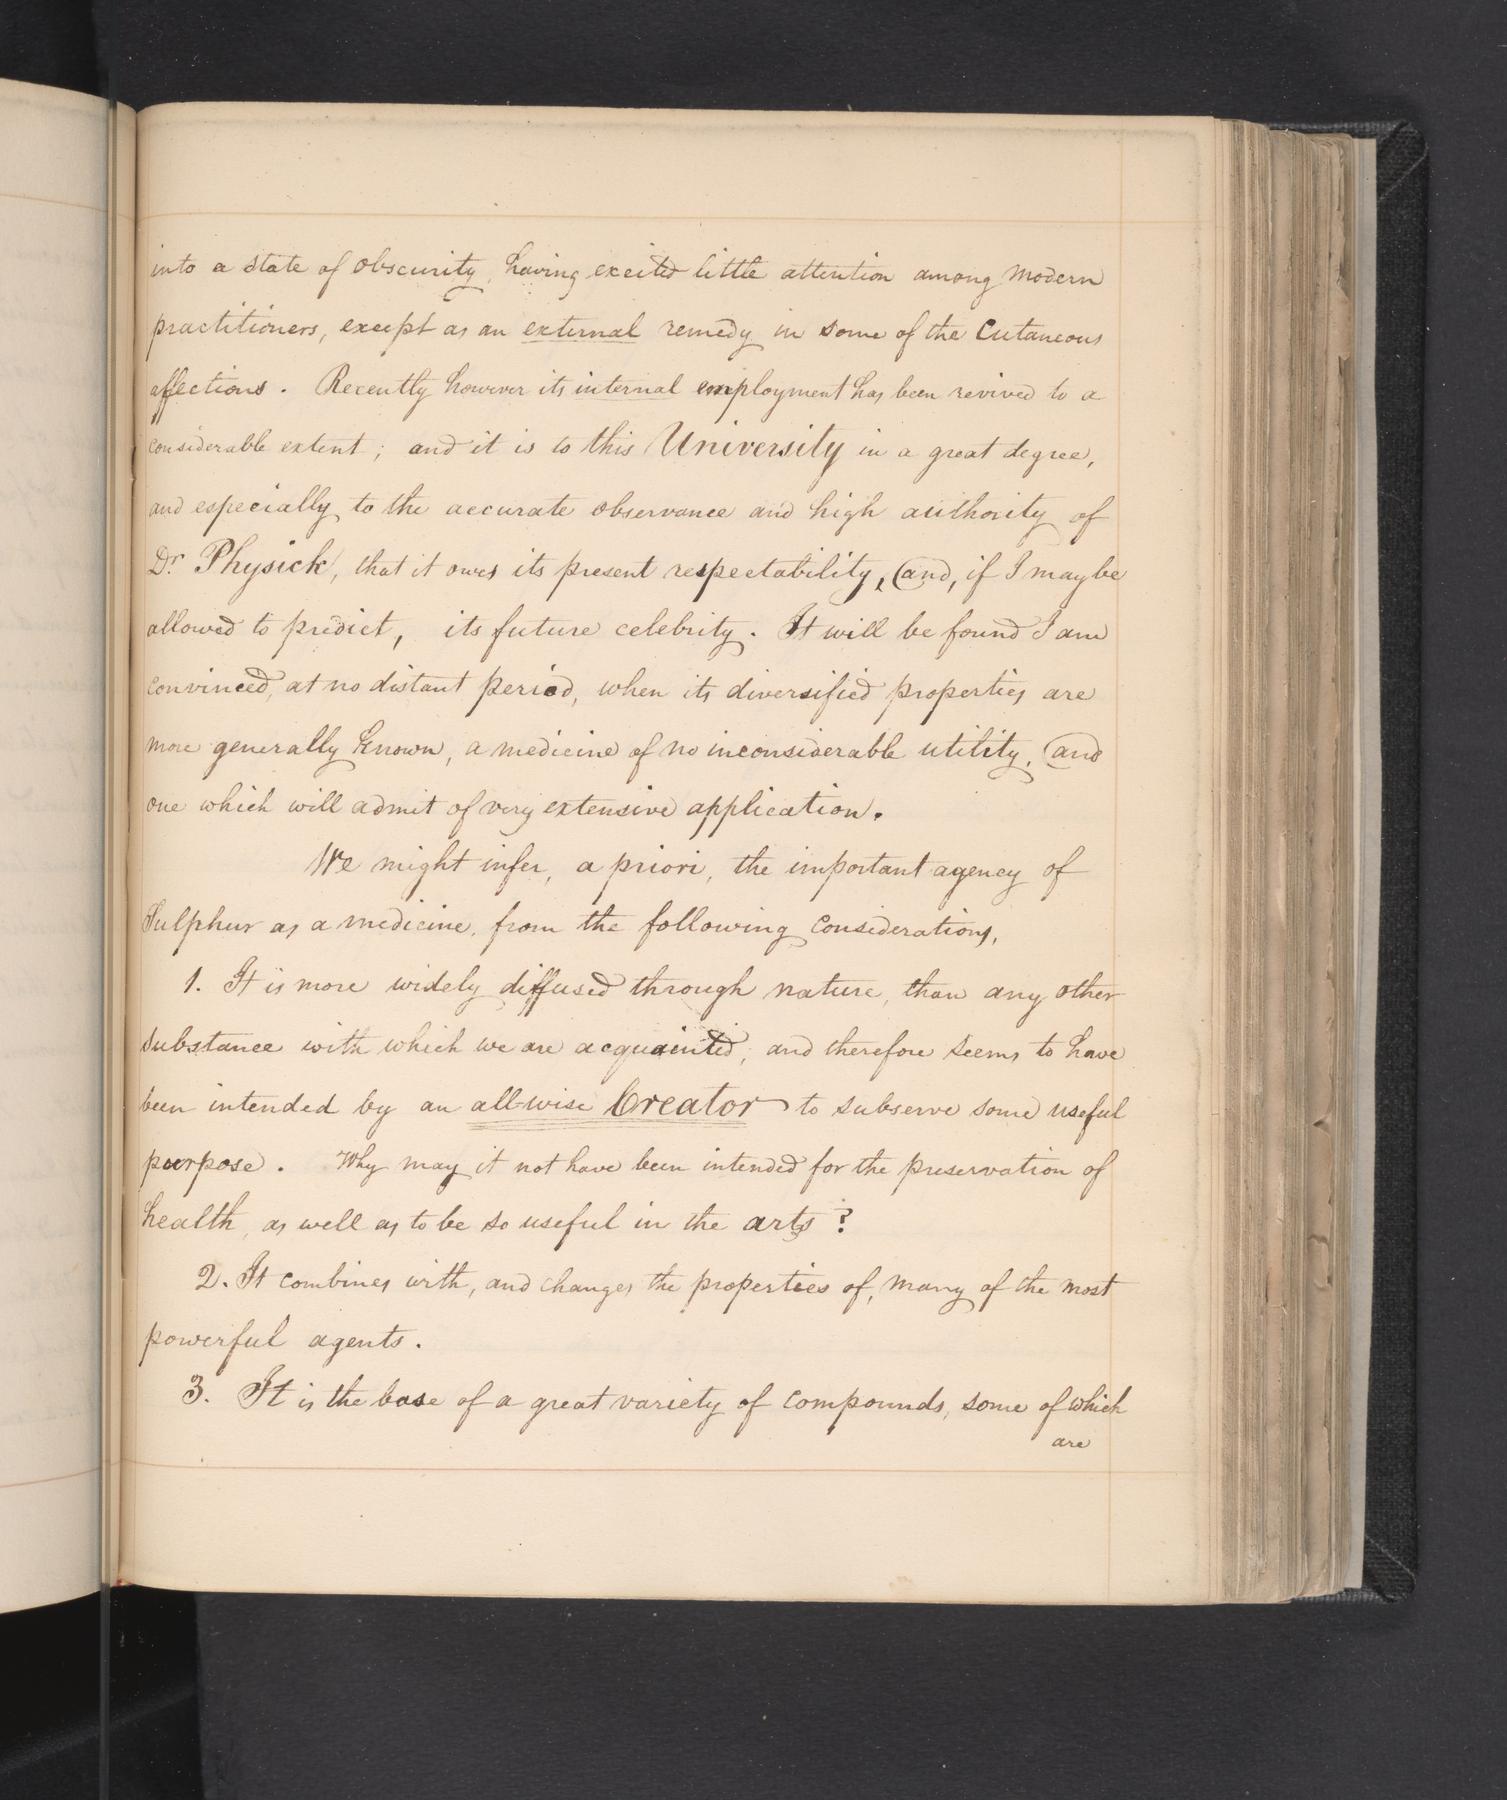 into a state of obscurity, having excited little attention among modern
practitioners, except as an external remedy in some of the Cutaneous
affections. Recently however its internal employment has been revived to a
considerable extent; and it is to this University in a great degree,
and especially to the accurate observance and high authority of
Dr. Physick, that it owes its present respectability, and, if I may be
allowed to predict, its future celebrity. It will be found I am
convinced, at no distant period, when its diversified properties are
more generally known, a medicine of no inconsiderable utility, and
one which will admit of very extensive application.
We might infer, a priori, the important agency of
Sulphur as a medicine, from the following considerations,
1. It is more widely diffused through nature, than any other
substance with which we are acquainted; and therefore seems to have
been intended by an all-wise Creator to subserve some useful
purpose. Why may it not have been intended for the preservation of
health, as well as to be so useful in the arts?
2. It combines with, and changes the properties of, many of the most
powerful agents.
3. It is the base of a great variety of compounds, some of which
are